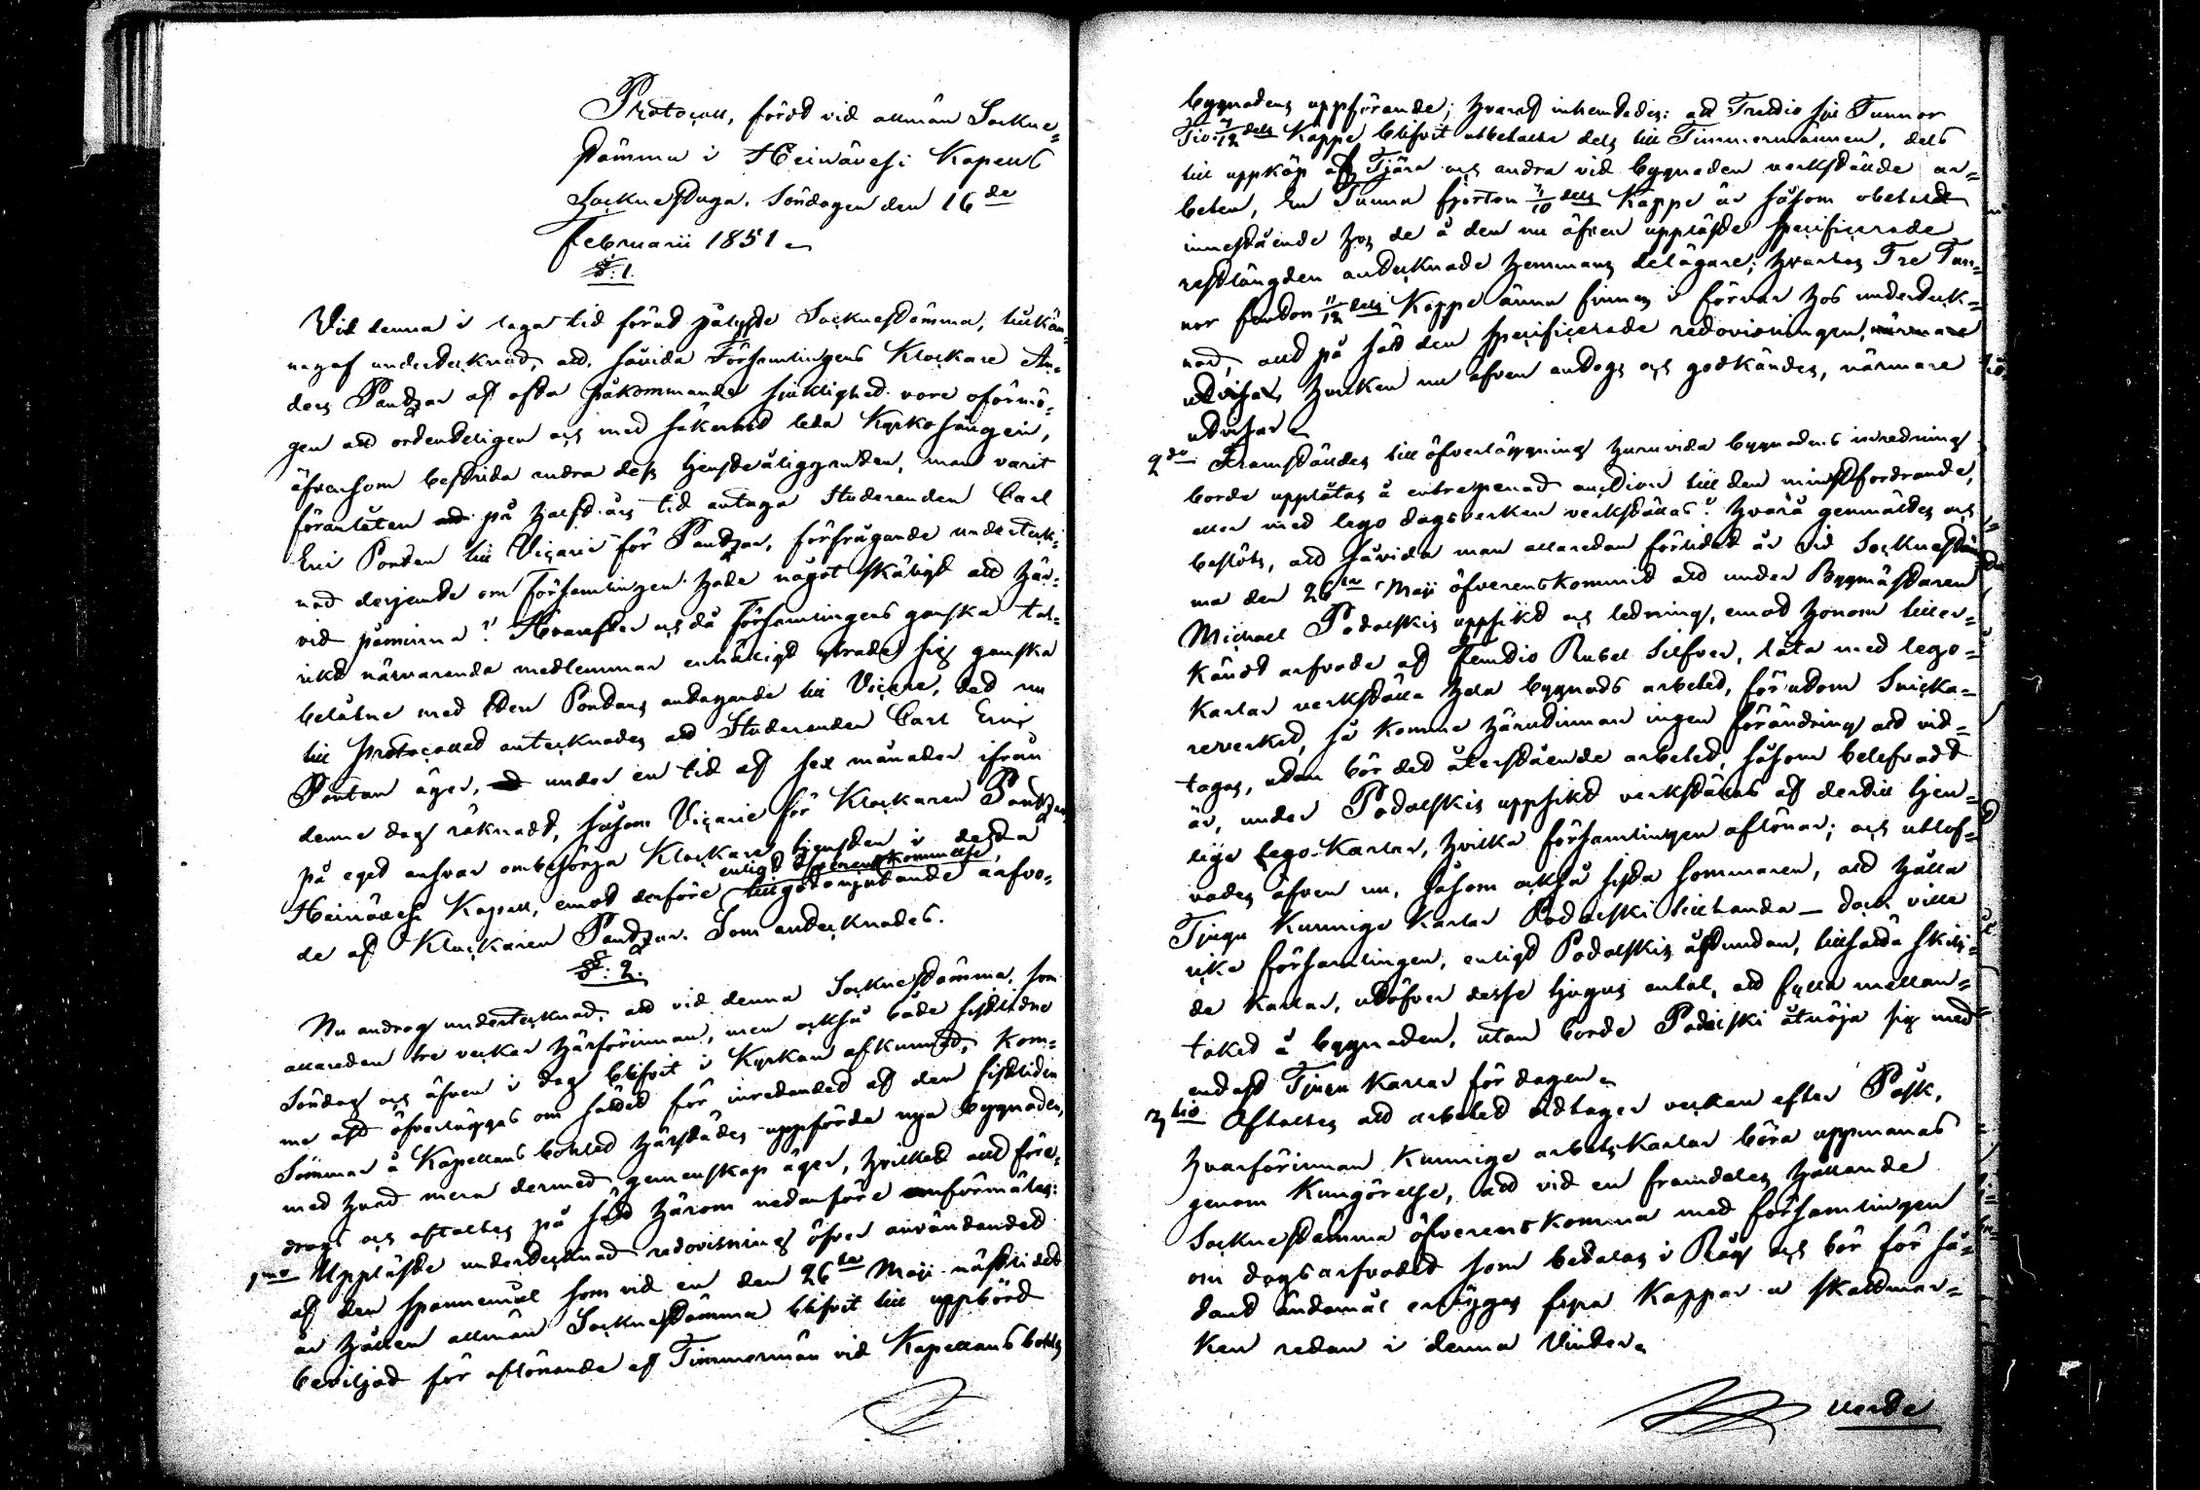 Protocoll, fördt vid allmän Sockne-
stämma i Heinävesi Kapells
Socknestuga, Söndagen den 16de
Februarii 1851.
§: 1.
Vid denna i laga tid förut pålyste Socknestämma, tillkän-
nagaf undertecknad, att, såvida Församlingens Klockare An-
ders Pantzar af ofta påkommande sjuklighet vore oförmö-
gen att ordenteligen och med säkerhet leda Kyrkosången,
äfvensom bestrida andra dess tjensteåligganden, man varit
föranlåten på half års tid antaga Studeranden Carl
Eric Pontan till Vicarie för Pantzar, förfrågande underteck-
nad derjemte om Församlingen hade något skäligt att här-
vid påminna? Hvarefter och då Församlingens ganska tal-
rikt närvarande medlemmar enhäligt yttrade sig ganska
belåtne med den Pontans antagande till Vicarie, det nu
till Protocollet antecknades att Studeranden Carl Eric
Pontan äger, under en tid af sex månader ifrån
denne dag räknadt, såsom Vicarie för Klockaren Pantzar
på eget ansvar ombesörja Klockare tjensten i detta
enligt öfverenskommelse,
Heinävesi Kapell, emot derföre tillgodonjutande arfvo-
de af Klockaren Pantzar. Som antecknades.
§: 2.
Nu androg undertecknad, att vid denna Socknestämma, som
allaredan tre veckor härförinnan, men också både sistledne
Söndag och äfven i dag blifvit i Kyrkan afkunnad, kom-
me att öfverläggas om sättet för inredandet af den sistliden
Sommar å Kapellans bohlet härstädes uppförda nya byggnaden,
med hvad mera dermed gemenskap äger, hvilket allt före-
drogs och aftaltes på sätt härom nedanföre omförmäles:
1mo Uppläste undertecknad redovisning öfver användandet
af den spannemål som vid en den 26de Maji nästlidet
år hållen allmän Socknestämma blifvit till uppbörd
beviljad för aflönande af Timmermän vid Kapellans bohls
byggnadens uppförande; hvaraf inhemtades: att Trettio sju Tunnor
Tio 7/12 dels Kappe blifvit utbetalte dels till Timmermännen, dels
till uppköp af Tjära och andra vid byggnaden verkstälde ar-
beten, En Tunna fjorton 7/10 dels Kappe är såsom obetald
innestående hos de å den nu äfven uppläste specificerade
restlängden antecknade hemmans delägare; hvarhos Tre Tun-
nor femton 11/12 dels Kappe ännu finnes i förvar hos underteck-
nad, allt på sätt den specificerade redovisningen,
hvilken nu äfven antogs och godkändes, närmare
utvisar.
2do Framstäldes till öfverläggning huruvida byggnadens inredning
borde upplåtas å entreprenad auction till den minstfordrande,
eller med lego dagsverken verkställas? Hvarå genmäldes och
beslöts, att såvida man allaredan förlidet år vid Socknestäm-
ma den 26te Maji öfverenskommit att under Byggmästaren
Michael Podalskis uppsikt och ledning, emot honom tiller-
kändt arfvode af Femtio Rubel Silfver, låta med lego-
karlar verkställa hela byggnads arbetet, förutom Snicka-
reverket, så komme härutinnan ingen förändring att vid-
tagas, utan bör det återstående arbetet, såsom belefvadt
är, under Podalskis uppsikt verkställas af dertill tjen-
lige lego-karlar, hvilka församlingen aflönar; och utlof-
vades äfven nu, såsom också sista sommaren, att hålla
Tjugu kunnige karlar Podalski tillhanda — dock ville
icke församlingen, enligt Podalskis åstundan, tillsätta skilj-
de karlar, utöfver desse tjugus antal, att fylla mellan-
taket å byggnaden, utan borde Podalski åtnöja sig med
endast Tjugu karlar för dagen.
3tio Aftaltes att arbetet vidtager veckan efter Påsk,
hvarförinnan kunnige arbetskarlar böra uppmanas
genom kungörelse, att vid en framdeles hållande
Socknestämma öfverenskomma med församlingen
om dagsarfvodet som betalas i Råg och bör för så-
dant ändamål erläggas fyra kappar å skattmar-
ken redan i denna Vinter.